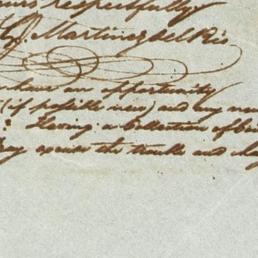 respectfully
Martinez del Rio
have an opportunity
(if possible new) and any new
? Having a Collection of bi
Pray excuse the trouble and